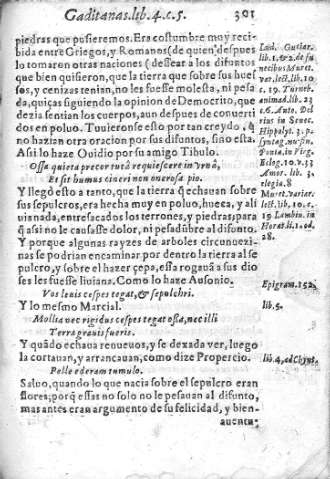 Gaditanas.lib.4.c.5. 301
piedras que pusieremos. Era costumbre muy reci
bida entre Griegos, y Romanos (de quien despues
lo tomaron otras naciones (dessear a los difuntos
que bien quisieron, que la tierra que sobre sus hues-
sos, y cenizas tenian, no les fuesse molesta, ni pesa
da, quiças siguiendo la opinion de Democrito, que
dezia sentian los cuerpos, aun despues de converti
dos en poluo. Tuuieronse esto por tan creydo, q̃
no hazian otra oracion por sus difuntos, sino esta.
Assi lo haze Ouidio por su amigo Tibulo.
Ossa quieta precor tuta requiescere in vrna,
Et sit humus cineri non onerosa tuo.
Y llegò esto a tanto, que la tierra q̃ echauan sobre
sus sepulcros, era hecha muy en poluo, hueca, y ali
uianada, entresacados los terrones, y piedras, para
q̃ assi no le causasse dolor, ni pesadũbre al difunto.
Y porque algunas rayzes de arboles circunuezi-
nas se podrian encaminar por dentro la tierra al se
pulcro, y sobre el hazer çepa, essa rogauã a sus dio
ses les fuesse liuiana. Como lo haze Ausonio.
Vos lenis cespes tegat, & sepulchri.
Y lo mesmo Marcial.
Mollia nec rigidus cespes tegat ossa, nec illi
Terra grauis fueris.
Y quãdo echaua renueuos, y se dexada ver, luego
la cortauan, y arrancauan, como dize Propercio.
Pelle ederam tumulo.
Saluo, quando lo que nacia sobre el sepulcro eran
flores, porq̃ essas no solo no le pesauan al difunto,
mas antes eran argumento de su felicidad, y bien-
auentu-
Laid. Gutlar.
lib. 1. & 2. de fu
necibus Muret.
ver. lect. lib. 10
c. 19. Turneb.
animad. lib. 23
c. 6. Anto. Del
rius in Senec.
Hippolyt. 3. p.
syntag. mihi
Ponta. in Virg.
Eclog. 10. v. 33
Amor. lib. 3.
elegia. 8
Muret. varier.
lect. lib. 10. c.
19 Lambin. in
Horat. li. 1. od.
28.
Epigram. 152.
lib. 5.
lib. 4. ad Chynt.